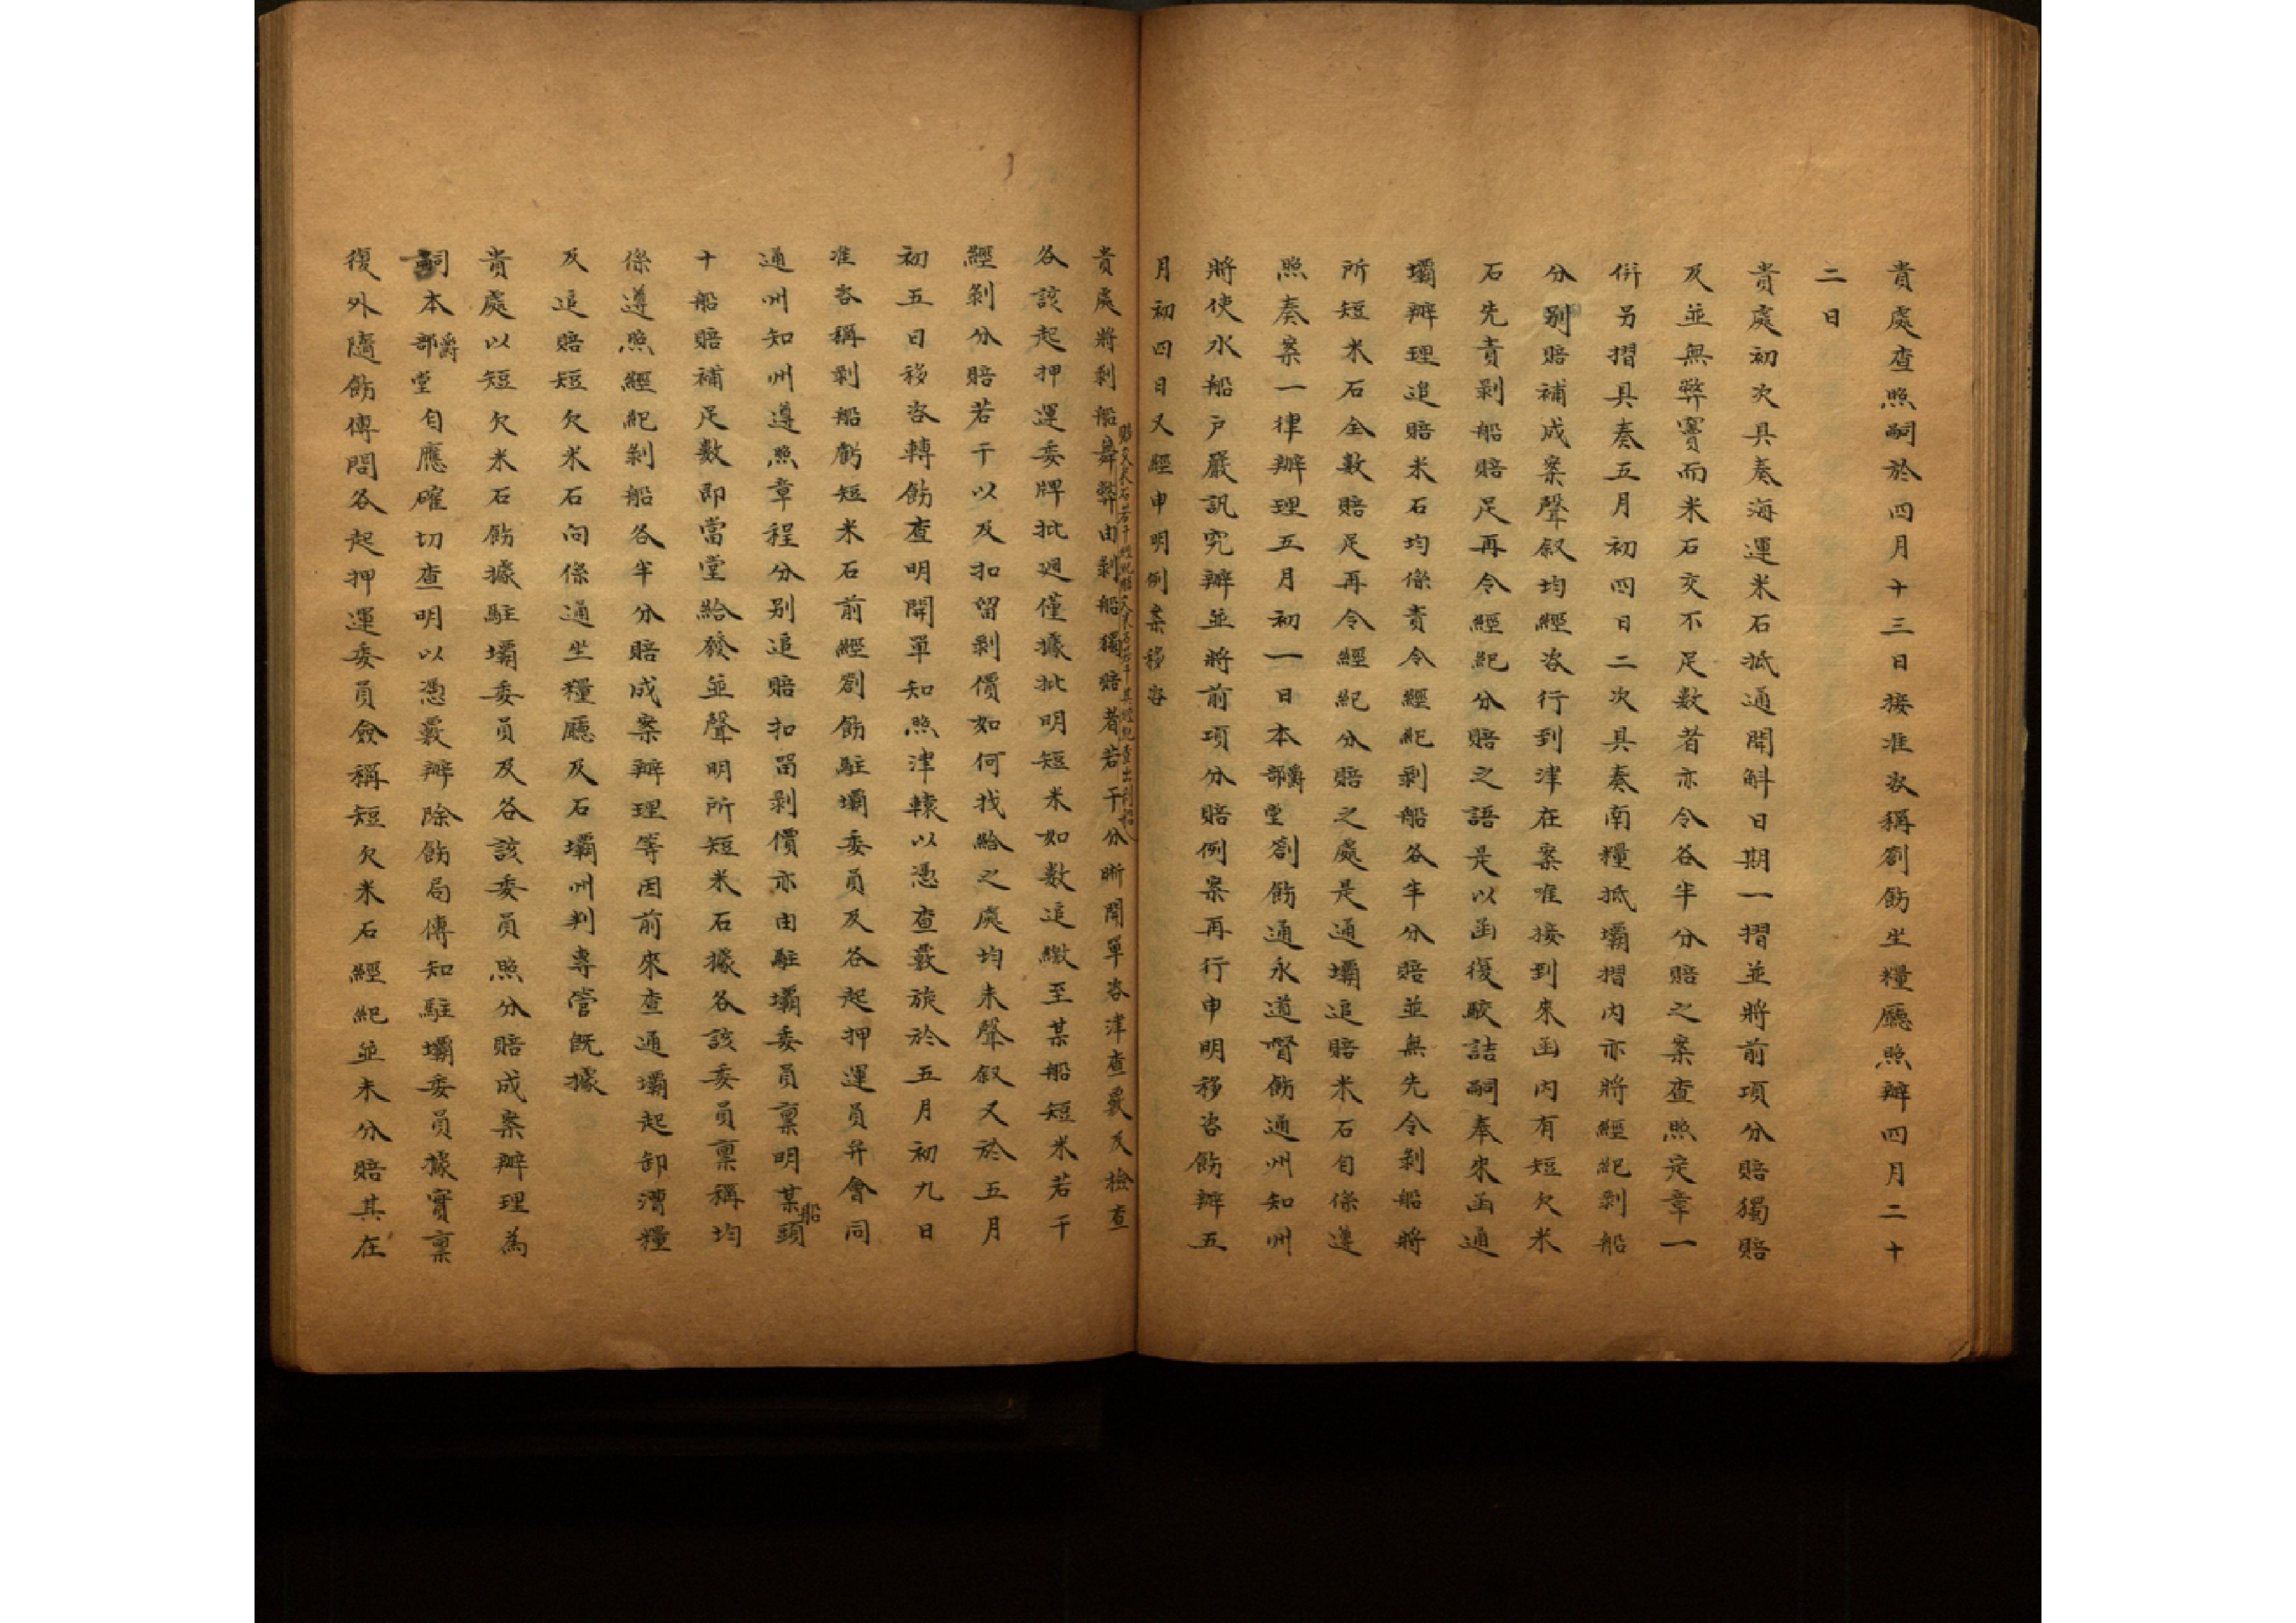 貴處查照嗣於四月十三日接准咨稱劄飭坐糧廳照辦四月二十
二日
貴處初次具奏海運米石抵通開斛日期一摺並將前項分賠獨賠
及並無弊竇而米石交不足數者亦令各半分賠之案查照定章一
併另摺具奏五月初四日二次具奏南糧抵壩摺內亦將經紀剝船
分別賠補成案聲叙均經咨行到津在案唯接到來函內有短欠米
石先責剝船賠足再令經紀分賠之語是以函復駁詰嗣奉來函通
壩辦理追賠米石均係責令經紀剝船各半分賠並無先令剝船將
所短米石全數賠足再令經紀分賠之處是通壩追賠米石自係遵
照奏案一律辦理五月初一日本爵部堂劄飭通永道督飭通州知州
將使水船戶嚴訊究辦並將前項分賠例案再行申明移咨飭辦五
月初四日又經申明例案移咨
貴處將剝船舞弊由剝船獨賠者若干分晰開單咨津查覈及檢查
各該起押運委牌批迴僅據批明短米如數追繳至某船短米若干
經剝分賠若干以及扣留剝價如何找給之處均未聲叙又於五月
初五日移咨轉飭查明開單知照津轅以憑查覈旋於五月初九日
准咨稱剝船虧短米石前經劄飭駐壩委員及各起押運員弁會同
通州知州遵照章程分別追賠扣留剝價亦由駐壩委員稟明某船頭
十船賠補足數即當堂給發並聲明所短米石據各該委員稟稱均
係遵照經紀剝船各半分賠成案辦理等因前來查通壩起卸漕糧
及追賠短欠米石向係通坐糧廳及石壩州判專管既據
貴處以短欠米石飭據駐壩委員及各該委員照分賠成案辦理為
嗣本爵部堂自應確切查明以憑覈辦除飭局傳知駐壩委員據實稟
復外隨飭傳問各起押運委員僉稱短欠米石經紀並未分賠其在